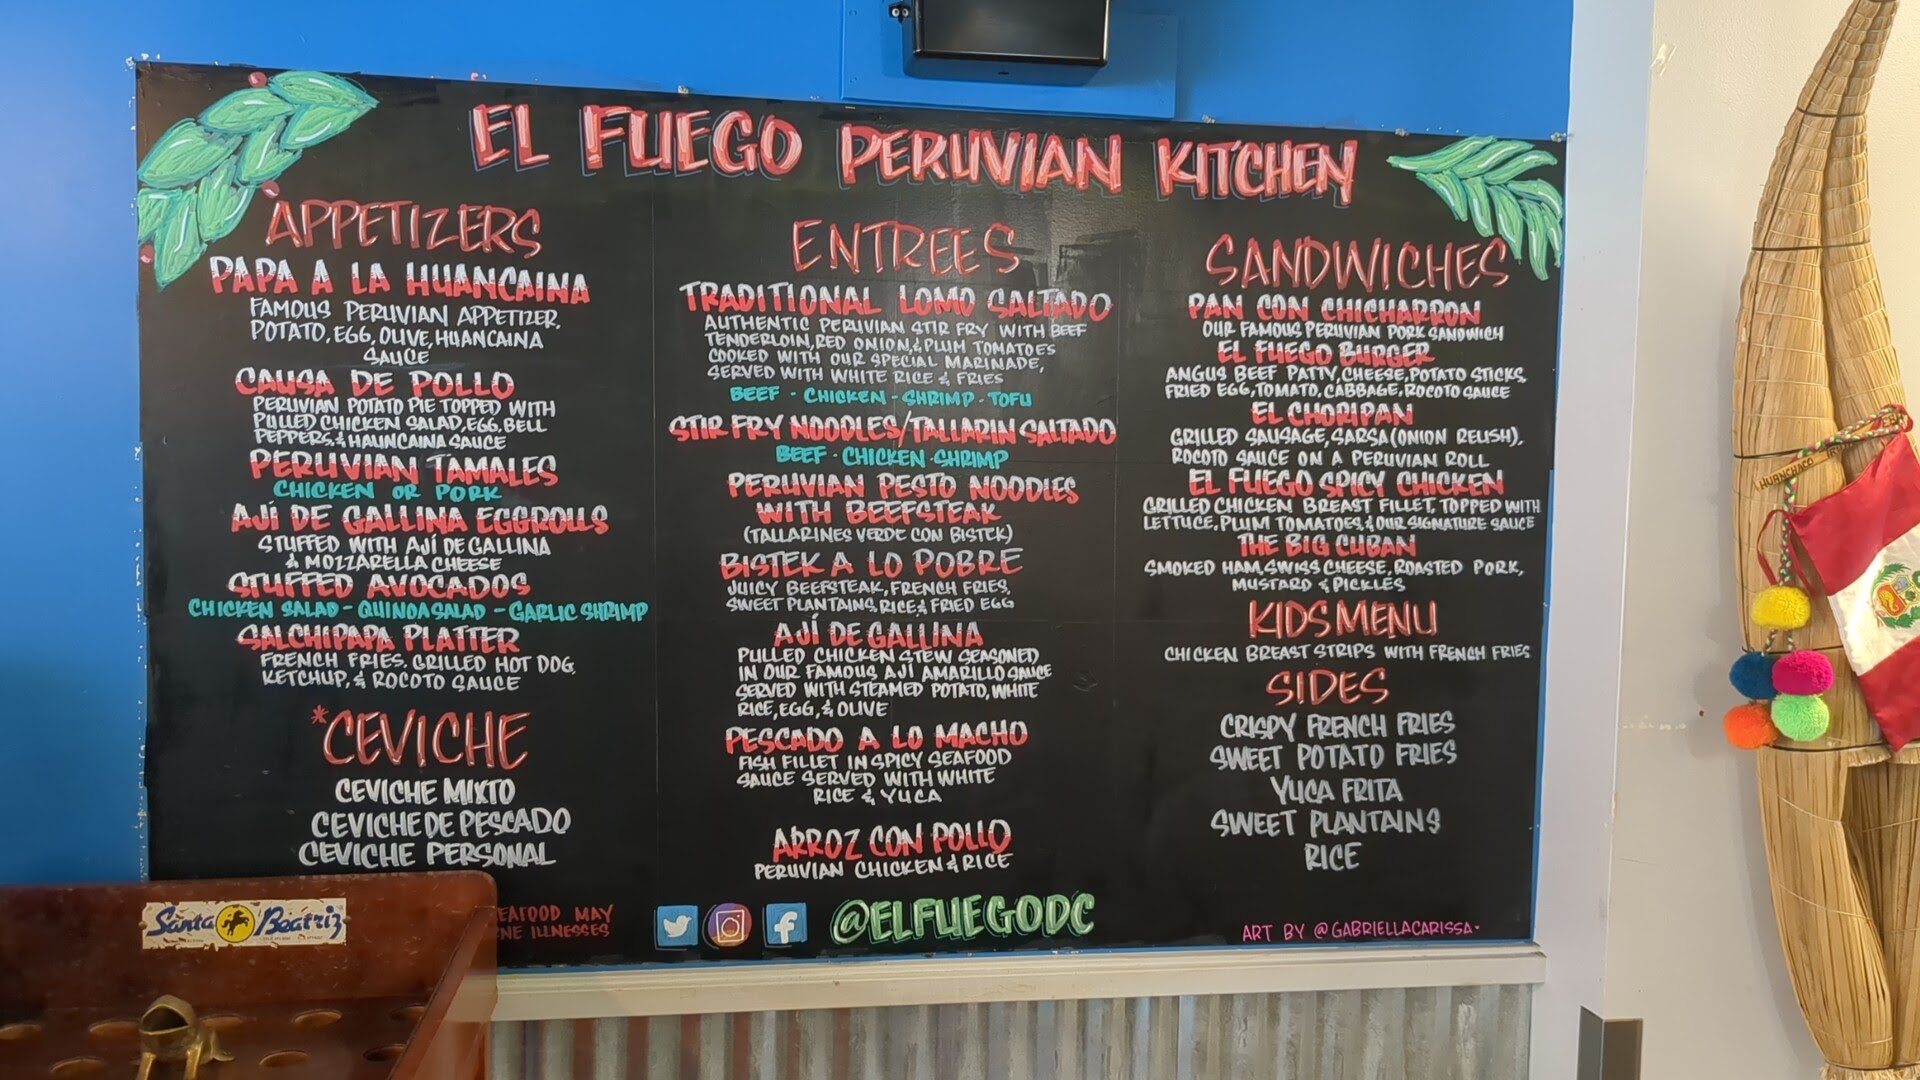 EL FUEGO PERUVIAN KITCHEN
APPETIZERS
PAPA A LA HUANCAINA
FAMOUS PERUVIAN APPETIZER,
POTATO, EGG, OLIVE, HUANCAINA
SAUCE
CAUSA DE POLLO
PERUVIAN POTATO PIE TOPPED WITH
PULLED CHICKEN SALAD, EGG, BELL
PEPPERS, & HAUNCAINA SAUCE
PERUVIAN TAMALES
CHICKEN OR PORK
AJÍ DE GALLINA EGGROLLS
STUFFED WITH AJÍ DE GALLINA
& MOZZARELLA CHEESE
STUFFED AVOCADOS
CHICKEN SALAD - QUINOA SALAD - GARLIC SHRIMP
SALCHIPAPA PLATTER
FRENCH FRIES, GRILLED HOT DOG,
KETCHUP, & ROCOTO SAUCE
*CEVICHE
CEVICHE MIXTO
CEVICHE DE PESCADO
CEVICHE PERSONAL
EAFOOD MAY
NE ILLNESSES
ENTREES
TRADITIONAL LOMO SALTADO
AUTHENTIC PERUVIAN STIR FRY WITH BEEF
TENDERLOIN, RED ONION, & PLUM TOMATOES
COOKED WITH OUR SPECIAL MARINADE,
SERVED WITH WHITE RICE & FRIES
BEEF - CHICKEN - SHRIMP - TOFU
STIR FRY NOODLES/TALLARIN SALTADO
BEEF - CHICKEN - SHRIMP
PERUVIAN PESTO NOODLES
WITH BEEFSTEAK
(TALLARINES VERDE CON BISTEK)
BISTEK A LO POBRE
JUICY BEEFSTEAK, FRENCH FRIES,
SWEET PLANTAINS, RICE & FRIED EGG
AJÍ DE GALLINA
PULLED CHICKEN STEW SEASONED
IN OUR FAMOUS AJÍ AMARILLO SAUCE
SERVED WITH STEAMED POTATO, WHITE
RICE, EGG, & OLIVE
PESCADO A LO MACHO
FISH FILLET IN SPICY SEAFOOD
SAUCE SERVED WITH WHITE
RICE & YUCA
ARROZ CON POLLO
PERUVIAN CHICKEN & RICE
@ELFUEGODC
SANDWICHES
PAN CON CHICHARRON
OUR FAMOUS PERUVIAN PORK SANDWICH
EL FUEGO BURGER
ANGUS BEEF PATTY, CHEESE, POTATO STICKS,
FRIED EGG, TOMATO, CABBAGE, ROCOTO SAUCE
EL CHORIPAN
GRILLED SAUSAGE, SARSA (ONION RELISH),
ROCOTO SAUCE ON A PERUVIAN ROLL
EL FUEGO SPICY CHICKEN
GRILLED CHICKEN BREAST FILLET, TOPPED WITH
LETTUCE, PLUM TOMATOES, & OUR SIGNATURE SAUCE
THE BIG CUBAN
SMOKED HAM, SWISS CHEESE, ROASTED PORK,
MUSTARD & PICKLES
KIDS MENU
CHICKEN BREAST STRIPS WITH FRENCH FRIES
SIDES
CRISPY FRENCH FRIES
SWEET POTATO FRIES
YUCA FRITA
SWEET PLANTAINS
RICE
ART BY @GABRIELLACARISSA
Santa Beatriz
HUANCHACO